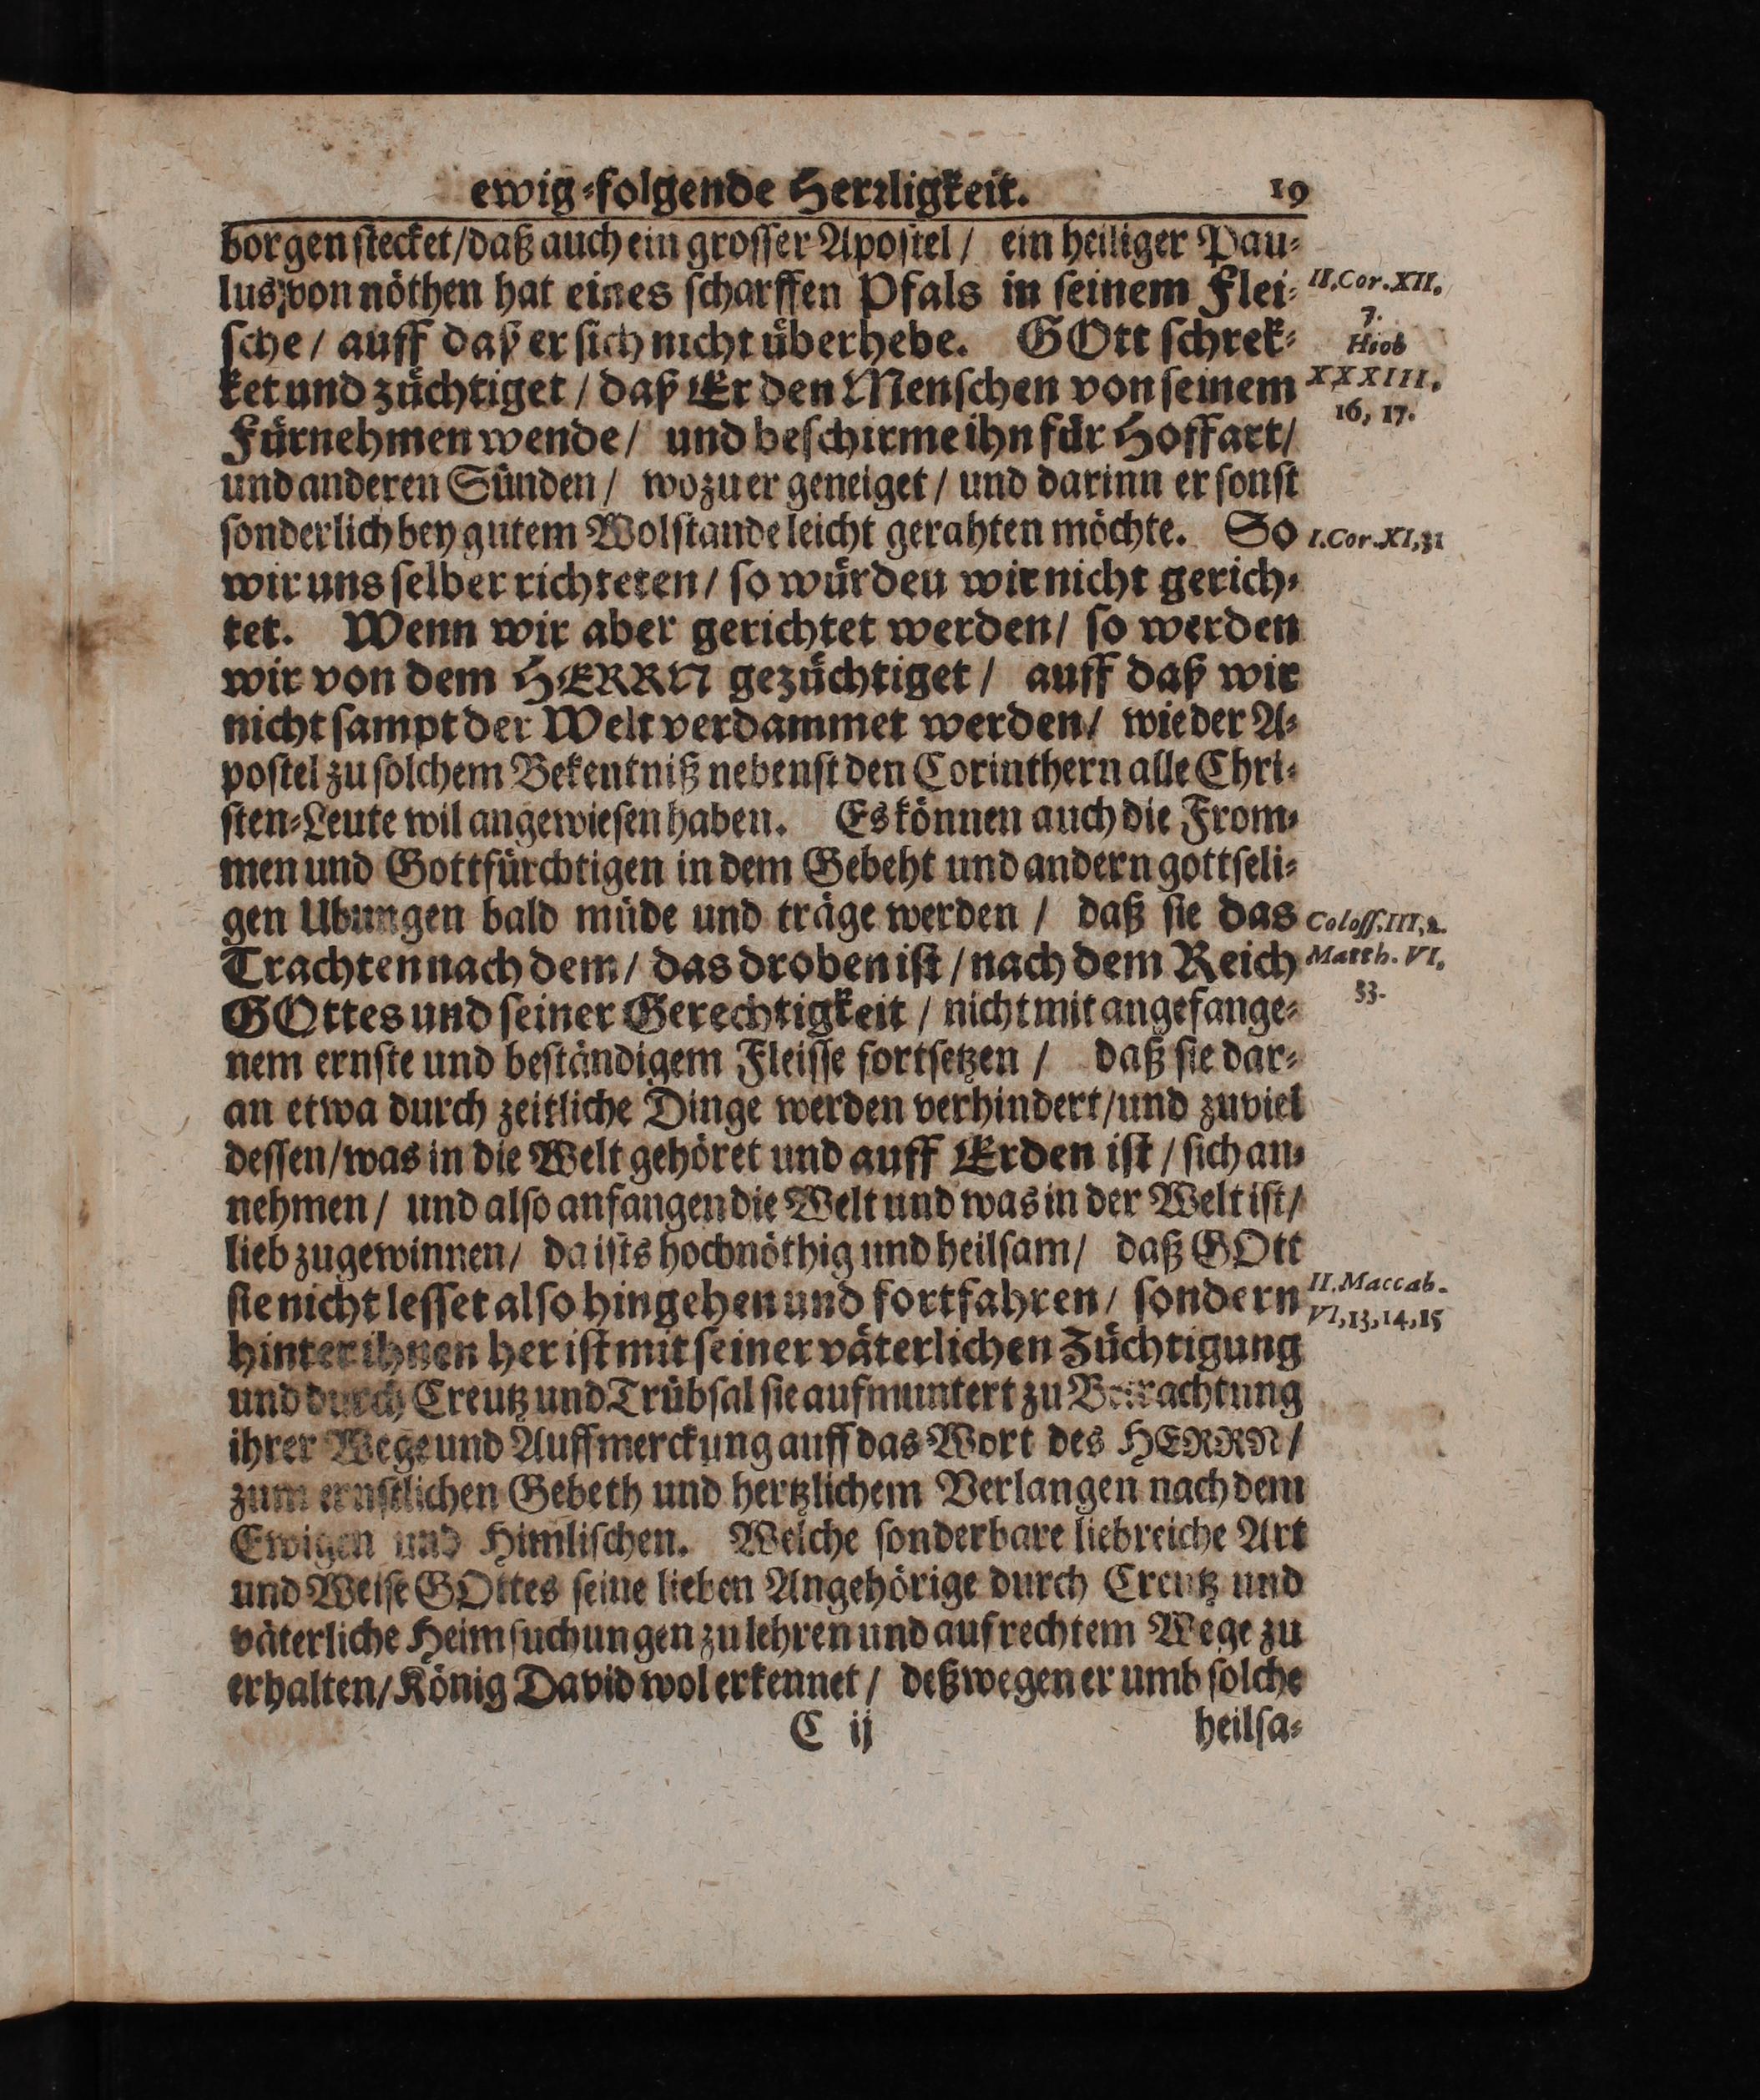 ewig-folgende Herrligkeit. 19
borgen stecket/daß auch ein grosser Apostel/ ein heiliger Pau-
lus, von nöthen hat eines scharffen Pfals in seinem Flei-
II. Cor. XII.
7.
sche/ auff daß er sich nicht überhebe. GOtt schrek-
Hiob
ket und züchtiget/ daß Er den Menschen von seinem
XXXIII.
16, 17.
Fürnehmen wende/ und beschirme ihn für Hoffart/
und anderen Sünden/ wozu er geneiget/ und darinn er sonst
sonderlich bey gutem Wolstande leicht gerahten möchte. So
I. Cor. XI, 31
wir uns selber richteten/ so würden wir nicht gerich-
tet. Wenn wir aber gerichtet werden/ so werden
wir von dem HERRN gezüchtiget/ auff daß wir
nicht sampt der Welt verdammet werden/ wie der A-
postel zu solchem Bekentniß nebenst den Corinthern alle Chri-
sten-Leute wil angewiesen haben. Es können auch die From-
men und Gottfürchtigen in dem Gebeht und andern gottseli-
gen Ubungen bald müde und träge werden/ daß sie das
Coloss. III, 2.
Trachten nach dem/ das droben ist/ nach dem Reich
Matth. VI.
33.
GOttes und seiner Gerechtigkeit/ nicht mit angefange-
nem ernste und beständigem Fleisse fortsetzen/ daß sie dar-
an etwa durch zeitliche Dinge werden verhindert/und zuviel
dessen/was in die Welt gehöret und auff Erden ist/ sich an-
nehmen/ und also anfangen die Welt und was in der Welt ist/
lieb zugewinnen/ da ists hochnöthig und heilsam/ daß GOtt
sie nicht lesset also hingehen und fortfahren/ sondern
II. Maccab.
VI, 13, 14, 15
hinter ihnen her ist mit seiner väterlichen Züchtigung
und durch Creutz und Trübsal sie aufmuntert zu Betrachtung
ihrer Wege und Auffmerckung auff das Wort des HERRN/
zum ernstlichen Gebeth und hertzlichem Verlangen nach dem
Ewigen und Himlischen. Welche sonderbare liebreiche Art
und Weise GOttes seine lieben Angehörige durch Creutz und
väterliche Heimsuchungen zu lehren und auf rechtem Wege zu
erhalten/König David wol erkennet/ deßwegen er umb solche
C ij heilsa-